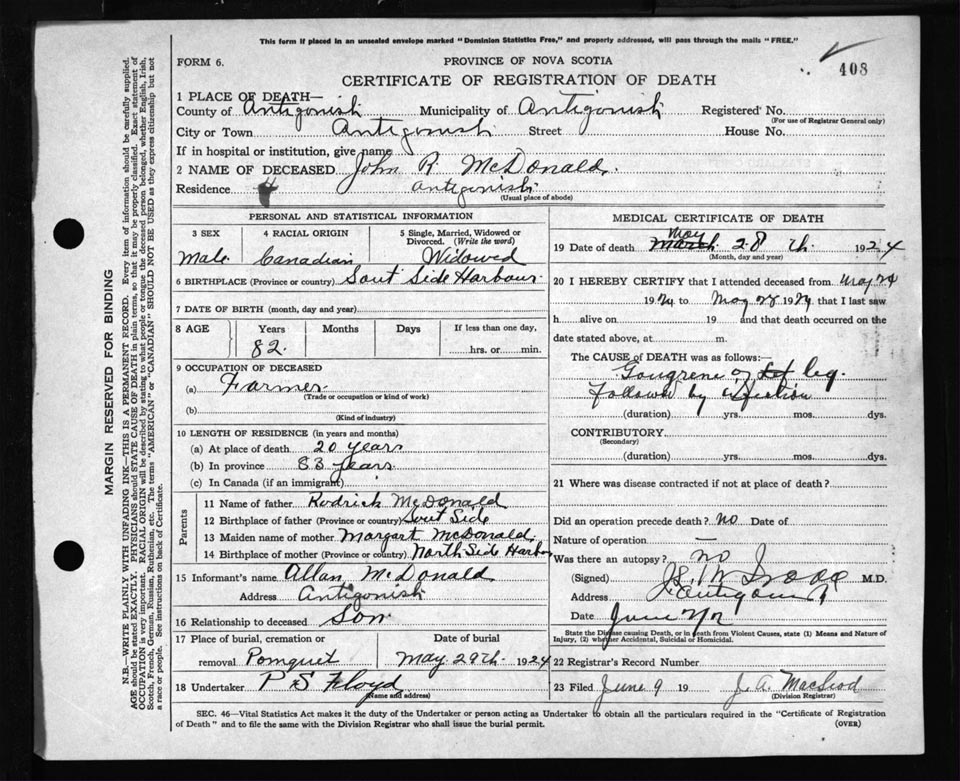 This form if placed in an unsealed envelope marked "Dominion Statistics Free," and properly addressed, will pass through the mails "FREE."
408
FORM 6.
PROVINCE OF NOVA SCOTIA
CERTIFICATE OF REGISTRATION OF DEATH
1 PLACE OF DEATH—
County of Antigonish Municipality of Antigonish Registered No.
(For use of Registrar General only)
City or Town Antigonish Street House No.
If in hospital or institution, give name
2 NAME OF DECEASED John R. McDonald
Residence Antigonish
(Usual place of abode)
PERSONAL AND STATISTICAL INFORMATION
3 SEX 4 RACIAL ORIGIN 5 Single, Married, Widowed or Divorced. (Write the word)
Male Canadian Widowed
6 BIRTHPLACE (Province or country) Sout Side Harbour
7 DATE OF BIRTH (month, day and year)
8 AGE Years Months Days If less than one day,
82 hrs. or min.
9 OCCUPATION OF DECEASED
(a) Farmer
(Trade or occupation or kind of work)
(b)
(Kind of industry)
10 LENGTH OF RESIDENCE (in years and months)
(a) At place of death 20 years
(b) In province 83 years
(c) In Canada (if an immigrant)
Parents
11 Name of father Rodrick McDonald
12 Birthplace of father (Province or country) Sout Side
13 Maiden name of mother Margart McDonald
14 Birthplace of mother (Province or country) North Side Harbor
15 Informant's name Allan McDonald
Address Antigonish
16 Relationship to deceased Son
17 Place of burial, cremation or Date of burial
removal Pomquet May 29th. 1924
18 Undertaker P S Floyd
(Name and address)
MEDICAL CERTIFICATE OF DEATH
May
19 Date of death March 28 th, 1924
(Month, day and year)
20 I HEREBY CERTIFY that I attended deceased from May 24
1924 to May 28 1924, that I last saw
h alive on 19 and that death occurred on the
date stated above, at m.
The CAUSE of DEATH was as follows:—
Gangrene of leg.
Followed by
(duration) yrs. mos. dys.
CONTRIBUTORY
(Secondary)
(duration) yrs. mos. dys.
21 Where was disease contracted if not at place of death?
Did an operation precede death? no Date of
Nature of operation —
Was there an autopsy? no
(Signed) M.D.
Address Antigonish
Date June
State the Disease causing Death, or in death from Violent Causes, state (1) Means and Nature of
Injury, (2) whether Accidental, Suicidal or Homicidal.
22 Registrar's Record Number
23 Filed June 9 19 J. A. MacLeod
(Division Registrar)
SEC. 46—Vital Statistics Act makes it the duty of the Undertaker or person acting as Undertaker to obtain all the particulars required in the "Certificate of Registration
of Death" and to file the same with the Division Registrar who shall issue the burial permit. (OVER)
MARGIN RESERVED FOR BINDING
N.B.—WRITE PLAINLY WITH UNFADING INK—THIS IS A PERMANENT RECORD. Every item of information should be carefully supplied.
AGE should be stated EXACTLY. PHYSICIANS should STATE CAUSE OF DEATH in plain terms, so that it may be properly classified. Exact statement of
OCCUPATION is very important. RACIAL ORIGIN will be described by stating to what people or tongue the deceased person belonged, whether English, Irish,
Scotch, French, German, Russian, Ruthenian, etc. The terms "AMERICAN" or "CANADIAN" SHOULD NOT BE USED as they express citizenship but not
a race or people. See instructions on back of Certificate.